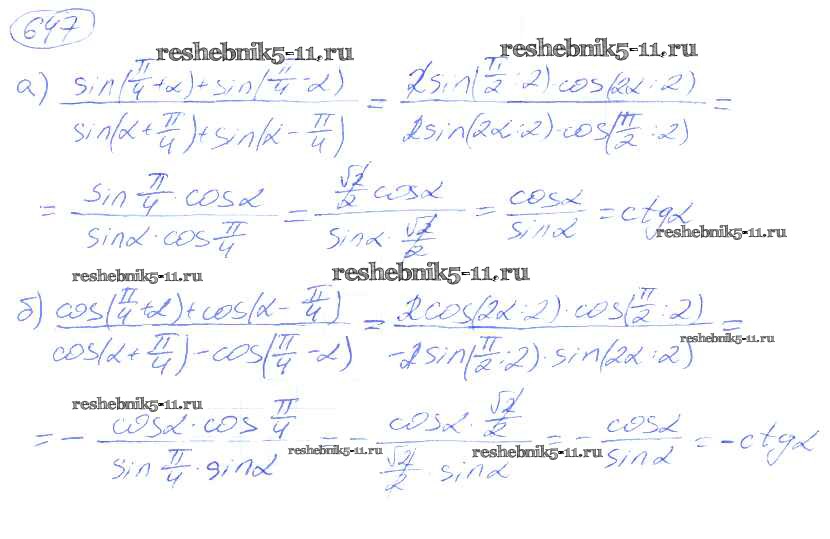 647
reshebnik5-11.ru reshebnik5-11.ru
а) (sin(π/4+α)+sin(π/4-α))/(sin(α+π/4)+sin(α-π/4)) = (2sin(π/2:2)·cos(2α:2))/(2sin(2α:2)·cos(π/2:2)) =
= (sin π/4·cosα)/(sinα·cos π/4) = (√2/2 cosα)/(sinα·√2/2) = cosα/sinα = ctgα
reshebnik5-11.ru
reshebnik5-11.ru reshebnik5-11.ru
б) (cos(π/4+α)+cos(α-π/4))/(cos(α+π/4)-cos(π/4-α)) = (2cos(2α:2)·cos(π/2:2))/(-2sin(π/2:2)·sin(2α:2)) =
reshebnik5-11.ru
reshebnik5-11.ru
= -(cosα·cos π/4)/(sin π/4·sinα) = -(cosα·√2/2)/(√2/2·sinα) = -cosα/sinα = -ctgα
reshebnik5-11.ru reshebnik5-11.ru